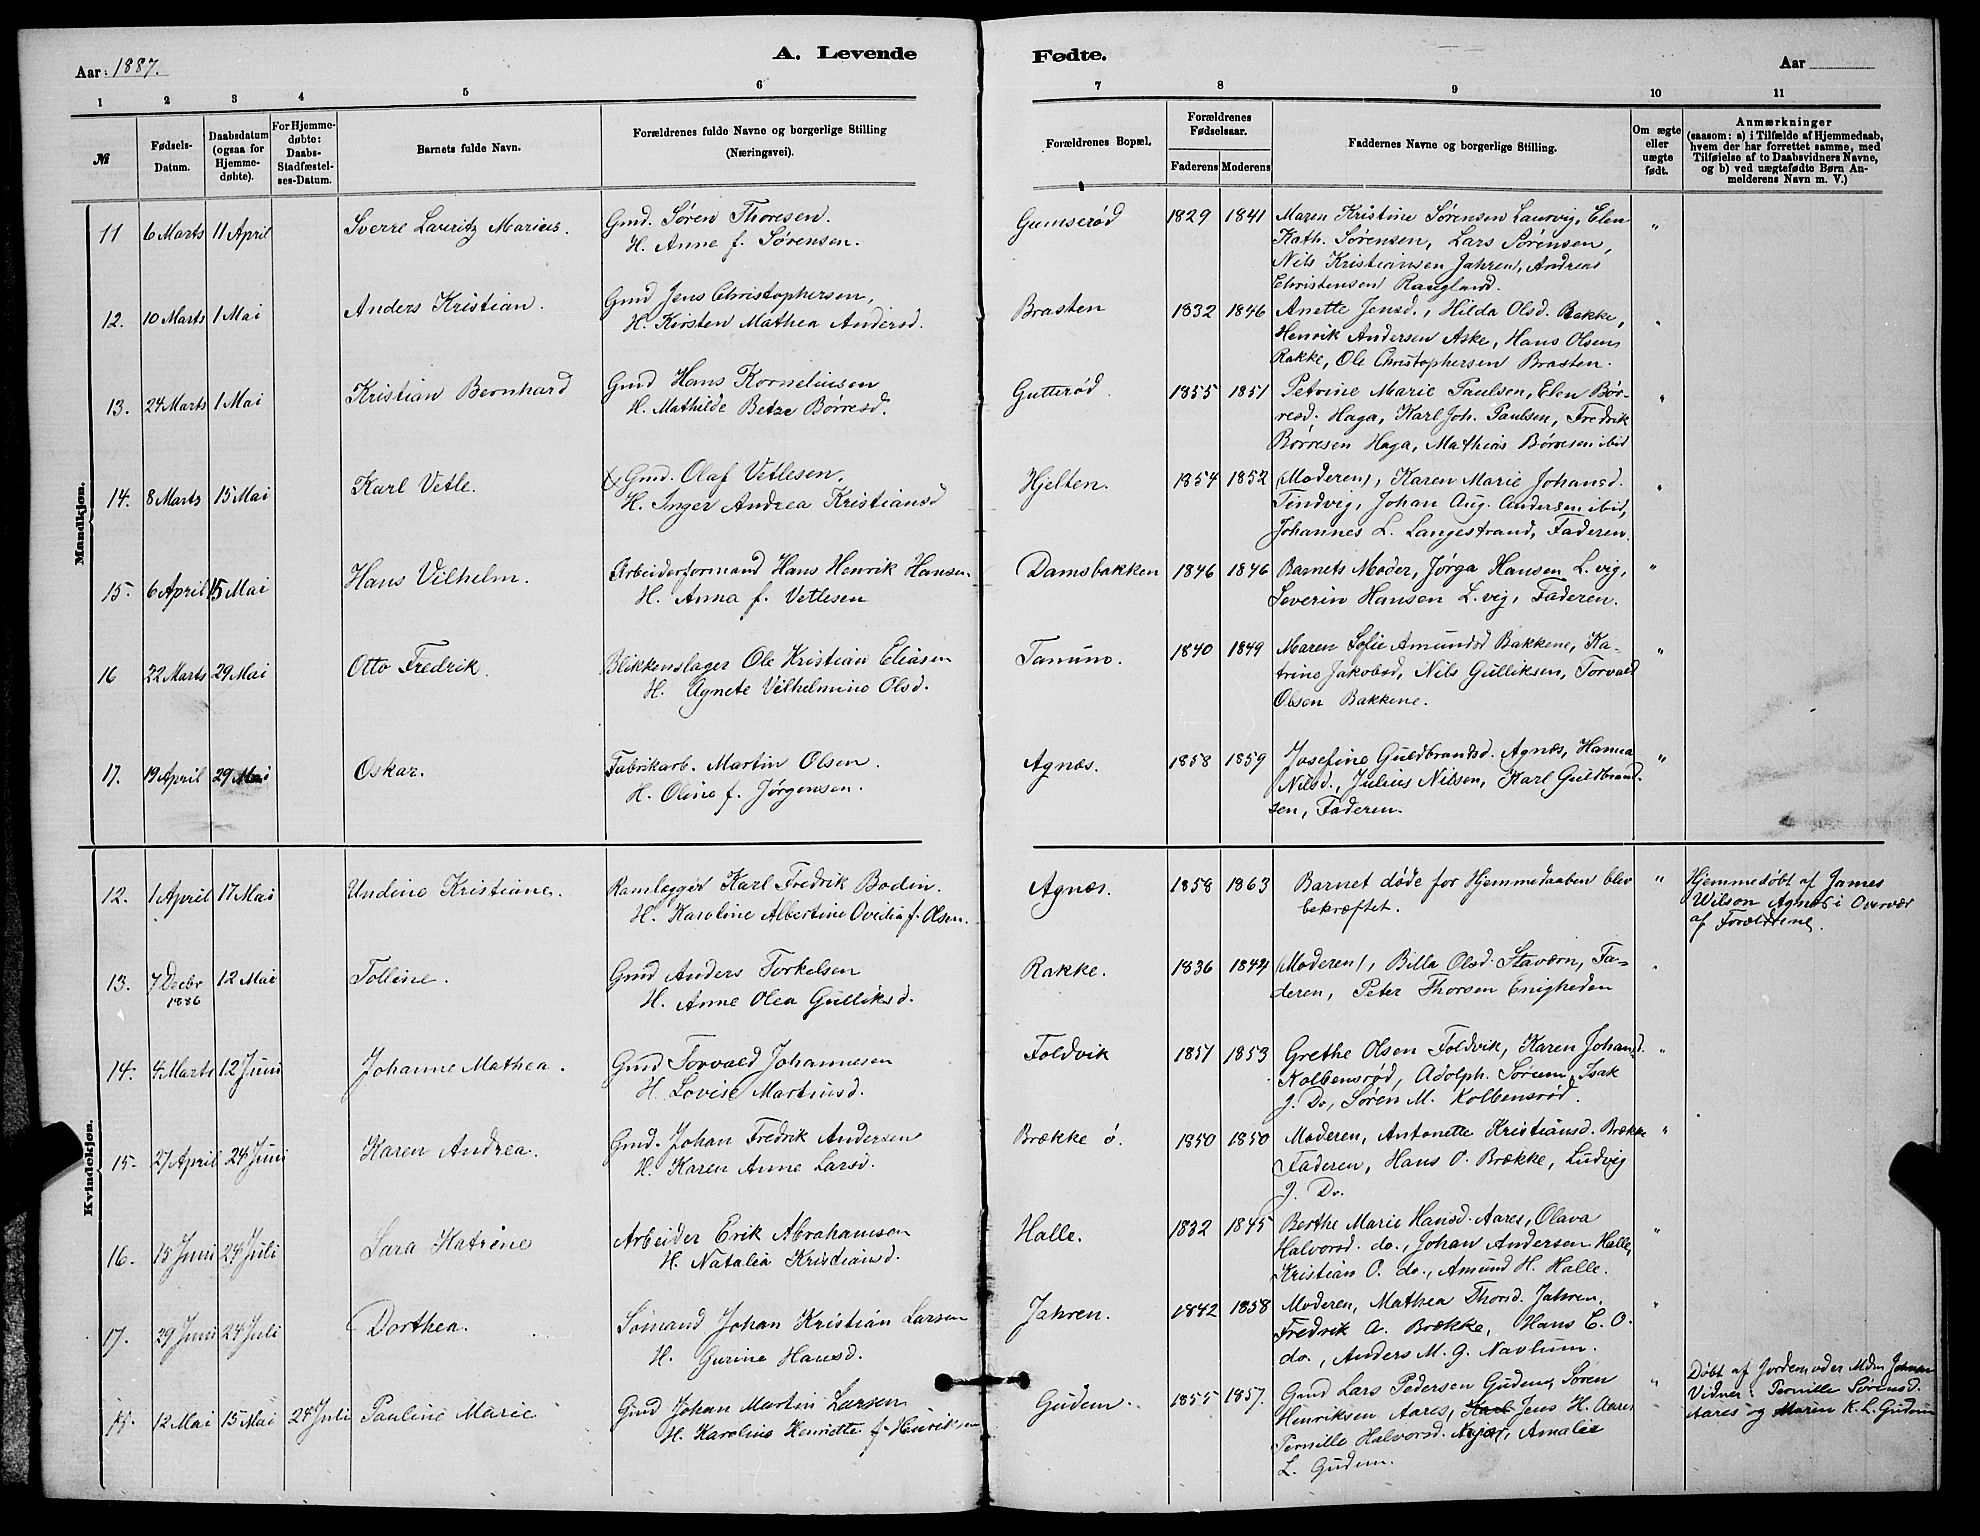 Aar: 1887.
A. Levende
Fødte.
Aar
1 2 3 4 5 6 7 8 9 10 11
№
Fødsels-
Datum.
Daabsdatum
(ogsaa for
Hjemme-
døbte).
For Hjemme-
døbte:
Daabs-
Stadfæstel-
ses-Datum.
Barnets fulde Navn.
Forældrenes fulde Navne og borgerlige Stilling
(Næringsvei).
Forældrenes Bopæl.
Forældrenes
Fødselsaar.
Faderens Moderens
Faddernes Navne og borgerlige Stilling.
Om ægte
eller
uægte
født.
Anmærkninger
(saasom: a) i Tilfælde af Hjemmedaab,
hvem der har forrettet samme, med
Tilføielse af to Daabsvidners Navne,
og b) ved uægtefødte Børn An-
melderens Navn m. V.)
Mandkjøn.
11 6 Marts 11 April Sverre Lauritz Marius. Gmd. Søren Thoresen. Gumserød 1829 1841 Maren Kristine Sørensen Laurvig, Elen "
H. Anne f. Sørensen. Kath. Sørensen, Lars Sørensen,
Nils Kristiansen Jahren, Andreas
Christensen Raugland.
12. 10 Marts 1 Mai Anders Kristian. Gmd Jens Christophersen, Brasten 1832 1846 Anette Jensd., Hilda Olsd. Rakke, "
H. Kirsten Mathea Andersd. Henrik Andersen Aske, Hans Olsen
Rakke, Ole Christophersen Brasten.
13. 24 Marts 1 Mai Kristian Bernhard Gmd Hans Korneliusen Gutterød. 1855 1851 Petrine Marie Paulsen, Elen Bør- "
H. Mathilde Betze Børresd. resd. Haga, Karl Joh. Paulsen, Fredrik
Børresen Haga, Mathias Børresen ibid
14. 8 Marts 15 Mai Karl Vetle. Gmd. Olaf Vetlesen, Hjelten. 1854 1852 (Moderen), Karen Marie Johansd. "
H. Inger Andrea Kristiansd Tindvig, Johan Aug. Andersen ibid,
Johannes L. Langestrand, Faderen.
15. 6 April 15 Mai Hans Vilhelm. Arbeiderformand Hans Henrik Hansen. Damsbakken 1846 1846 Barnets Moder, Jørga Hansen L.vig, "
H. Anna f. Vetlesen Severin Hansen L.vig, Faderen.
16 22 Marts 29 Mai Otto Fredrik. Blikkenslager Ole Kristian Eliasen Tanum. 1840 1849 Maren Sofie Amundsd Bakkene, Ka- "
H. Agnete Vilhelmine Olsd. trine Jakobsd, Nils Gulliksen, Torvald
Olsen Bakkene.
17. 19 April 29 Mai Oskar. Fabrikarb. Martin Olsen. Agnæs. 1858 1859 Josefine Guldbrandsd. Agnæs, Hanna "
H. Oline f. Jørgensen. Nilsd., Julius Nilsen, Karl Guldbrand-
sen, Faderen.
Kvindekjøn.
12. 1 April 17 Mai Undine Kristiane. Karl Fredrik Bodin. Agnæs. 1858 1863 Barnet døde før Hjemmedaaben blev " Hjemmedøbt af James
H. Karoline Albertine Ovidia f. Olsen. bekræftet. Wilson Agnæs i Overvær
af Forældrene.
13. 7 Decbr 12 Mai Tolline. Gmd Anders Torkelsen Rakke. 1836 1844 (Moderen), Billa Olsd. Stavern, Fa- "
1886 H. Anne Olea Gulliksd. deren, Peter Thorsen Enigheden
14. 4 Marts 12 Juni Johanne Mathea. Gmd Torvald Johannesen Foldvik 1851 1853 Grethe Olsen Foldvik, Karen Johansd. "
H. Lovise Martinsd. Kolbensrød, Adolph. Sørum, Isak
J. Do, Søren M. Kolbensrød.
15. 27 April 24 Juni Karen Andrea. Gmd. Johan Fredrik Andersen Brække ø. 1850 1850 Moderen, Antonette Kristiansd. Brække "
H. Karen Anne Larsd. Faderen, Hans O. Brække, Ludvig
J. Do.
16. 15 Juni 24 Juli Sara Katrine Arbeider Erik Abrahamsen Halle. 1832 1845 Berthe Marie Hansd. Aares, Olava "
H. Natalia Kristiansd. Halvorsd. do., Johan Andersen Halle,
Kristian O. do., Amund H. Halle.
17. 29 Juni 24 Juli Dorthea. Sømand Johan Kristian Larsen Jahren. 1842 1858 Moderen, Mathea Thorsd. Jahren. "
H. Gurine Hansd. Fredrik A. Brække, Hans C. O.
do., Anders M. G. Navlum.
12 Mai 15 Mai 24 Juli Pauline Marie Gmd Johan Martin Larsen Gudem. 1855 1857. Gmd Lars Pedersen Gudem, Søren " Døbt af Jordemoder Mdm
H. Karoline Henriette f. Henriksen Henriksen Aares, Jens H. Aares Vidner: Pernille Sørensd.
Pernille Halvorsd. Amalie Aares og Maren K. L. Gudem
L. Gudem.